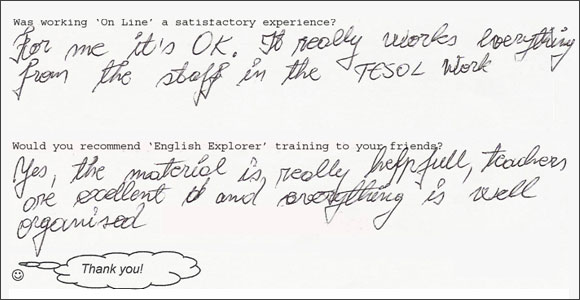 Was working 'On Line' a satisfactory experience?
For me it's OK. It really works everything
from the staff in the TESOL Work
Would you recommend 'English Explorer' training to your friends?
Yes, the material is really helpfull, teachers
are excellent and everything is well
organised
Thank you!